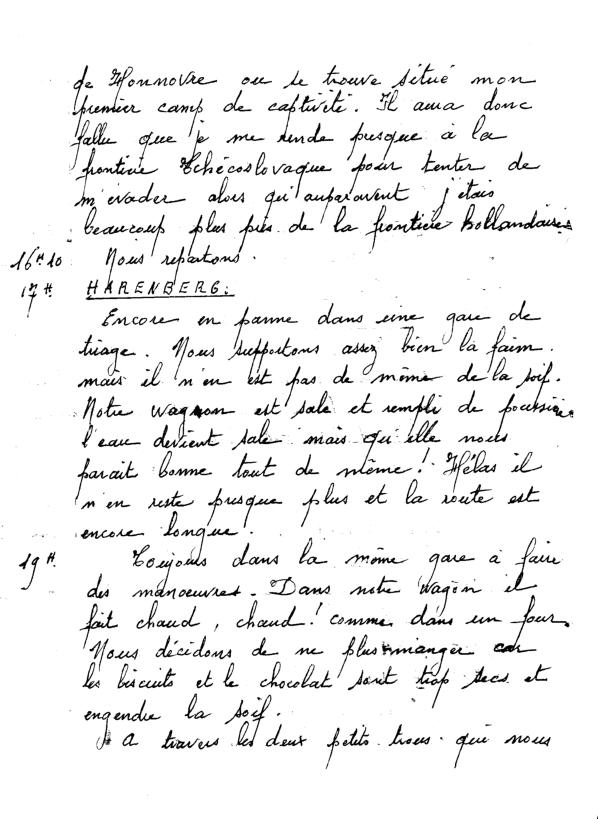 de Honnovre ou se trouve situé mon
premier camp de captivité. Il aura donc
fallu que je me rende presque à la
frontière Tchécoslovaque pour tenter de
m'evader alors qu'auparavent j'étais
beaucoup plus près de la frontière hollandaise.
16H10 Nous repartons.
17H HARENBERG:
Encore en panne dans une gare de
triage. Nous supportons assez bien la faim.
mais il n'en est pas de même de la soif.
Notre wagon est sale et rempli de poussière
l'eau devient sale mais qu'elle nous
parait bonne tout de même! Hélas il
n'en reste presque plus et la route est
encore longue.
19H. Toujours dans la même gare à faire
des manoeuvres. Dans notre wagon il
fait chaud, chaud! comme dans un four.
Nous décidons de ne plus manger car
les biscuits et le chocolat sont trop secs et
engendre la soif.
A travers les deux petits trous que nous